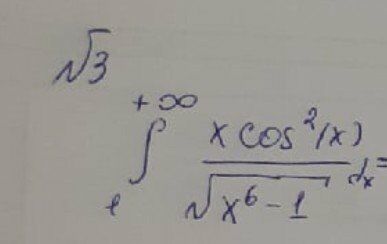 √3
∫₁^{+∞} x cos²(x) / √(x⁶ - 1) dx =